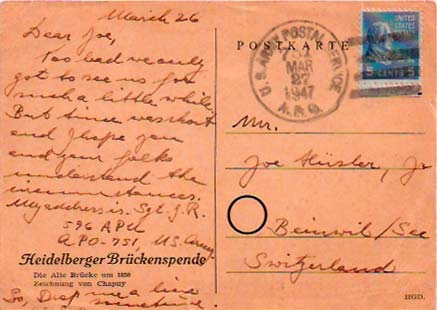 March 26
Dear Joe,
Too bad we only
got to see us for
such a little while.
But since was short
and I hope you
and your folks
understand the
circumstances.
My address is. Sgt. J.R.
596 APU
APO-751, US Army
Heidelberger Brückenspende
Die Alte Brücke um 1850
Zeichnung von Chapuy
So, Drop me a line
sometime.
POSTKARTE
U.S. ARMY POSTAL SERVICE
MAR
27
1947
A.P.O.
UNITED
STATES
POSTAGE
5 CENTS 5
Mr.
Joe Hüsler, Jr
Beinwil/See
Switzerland
HGD.